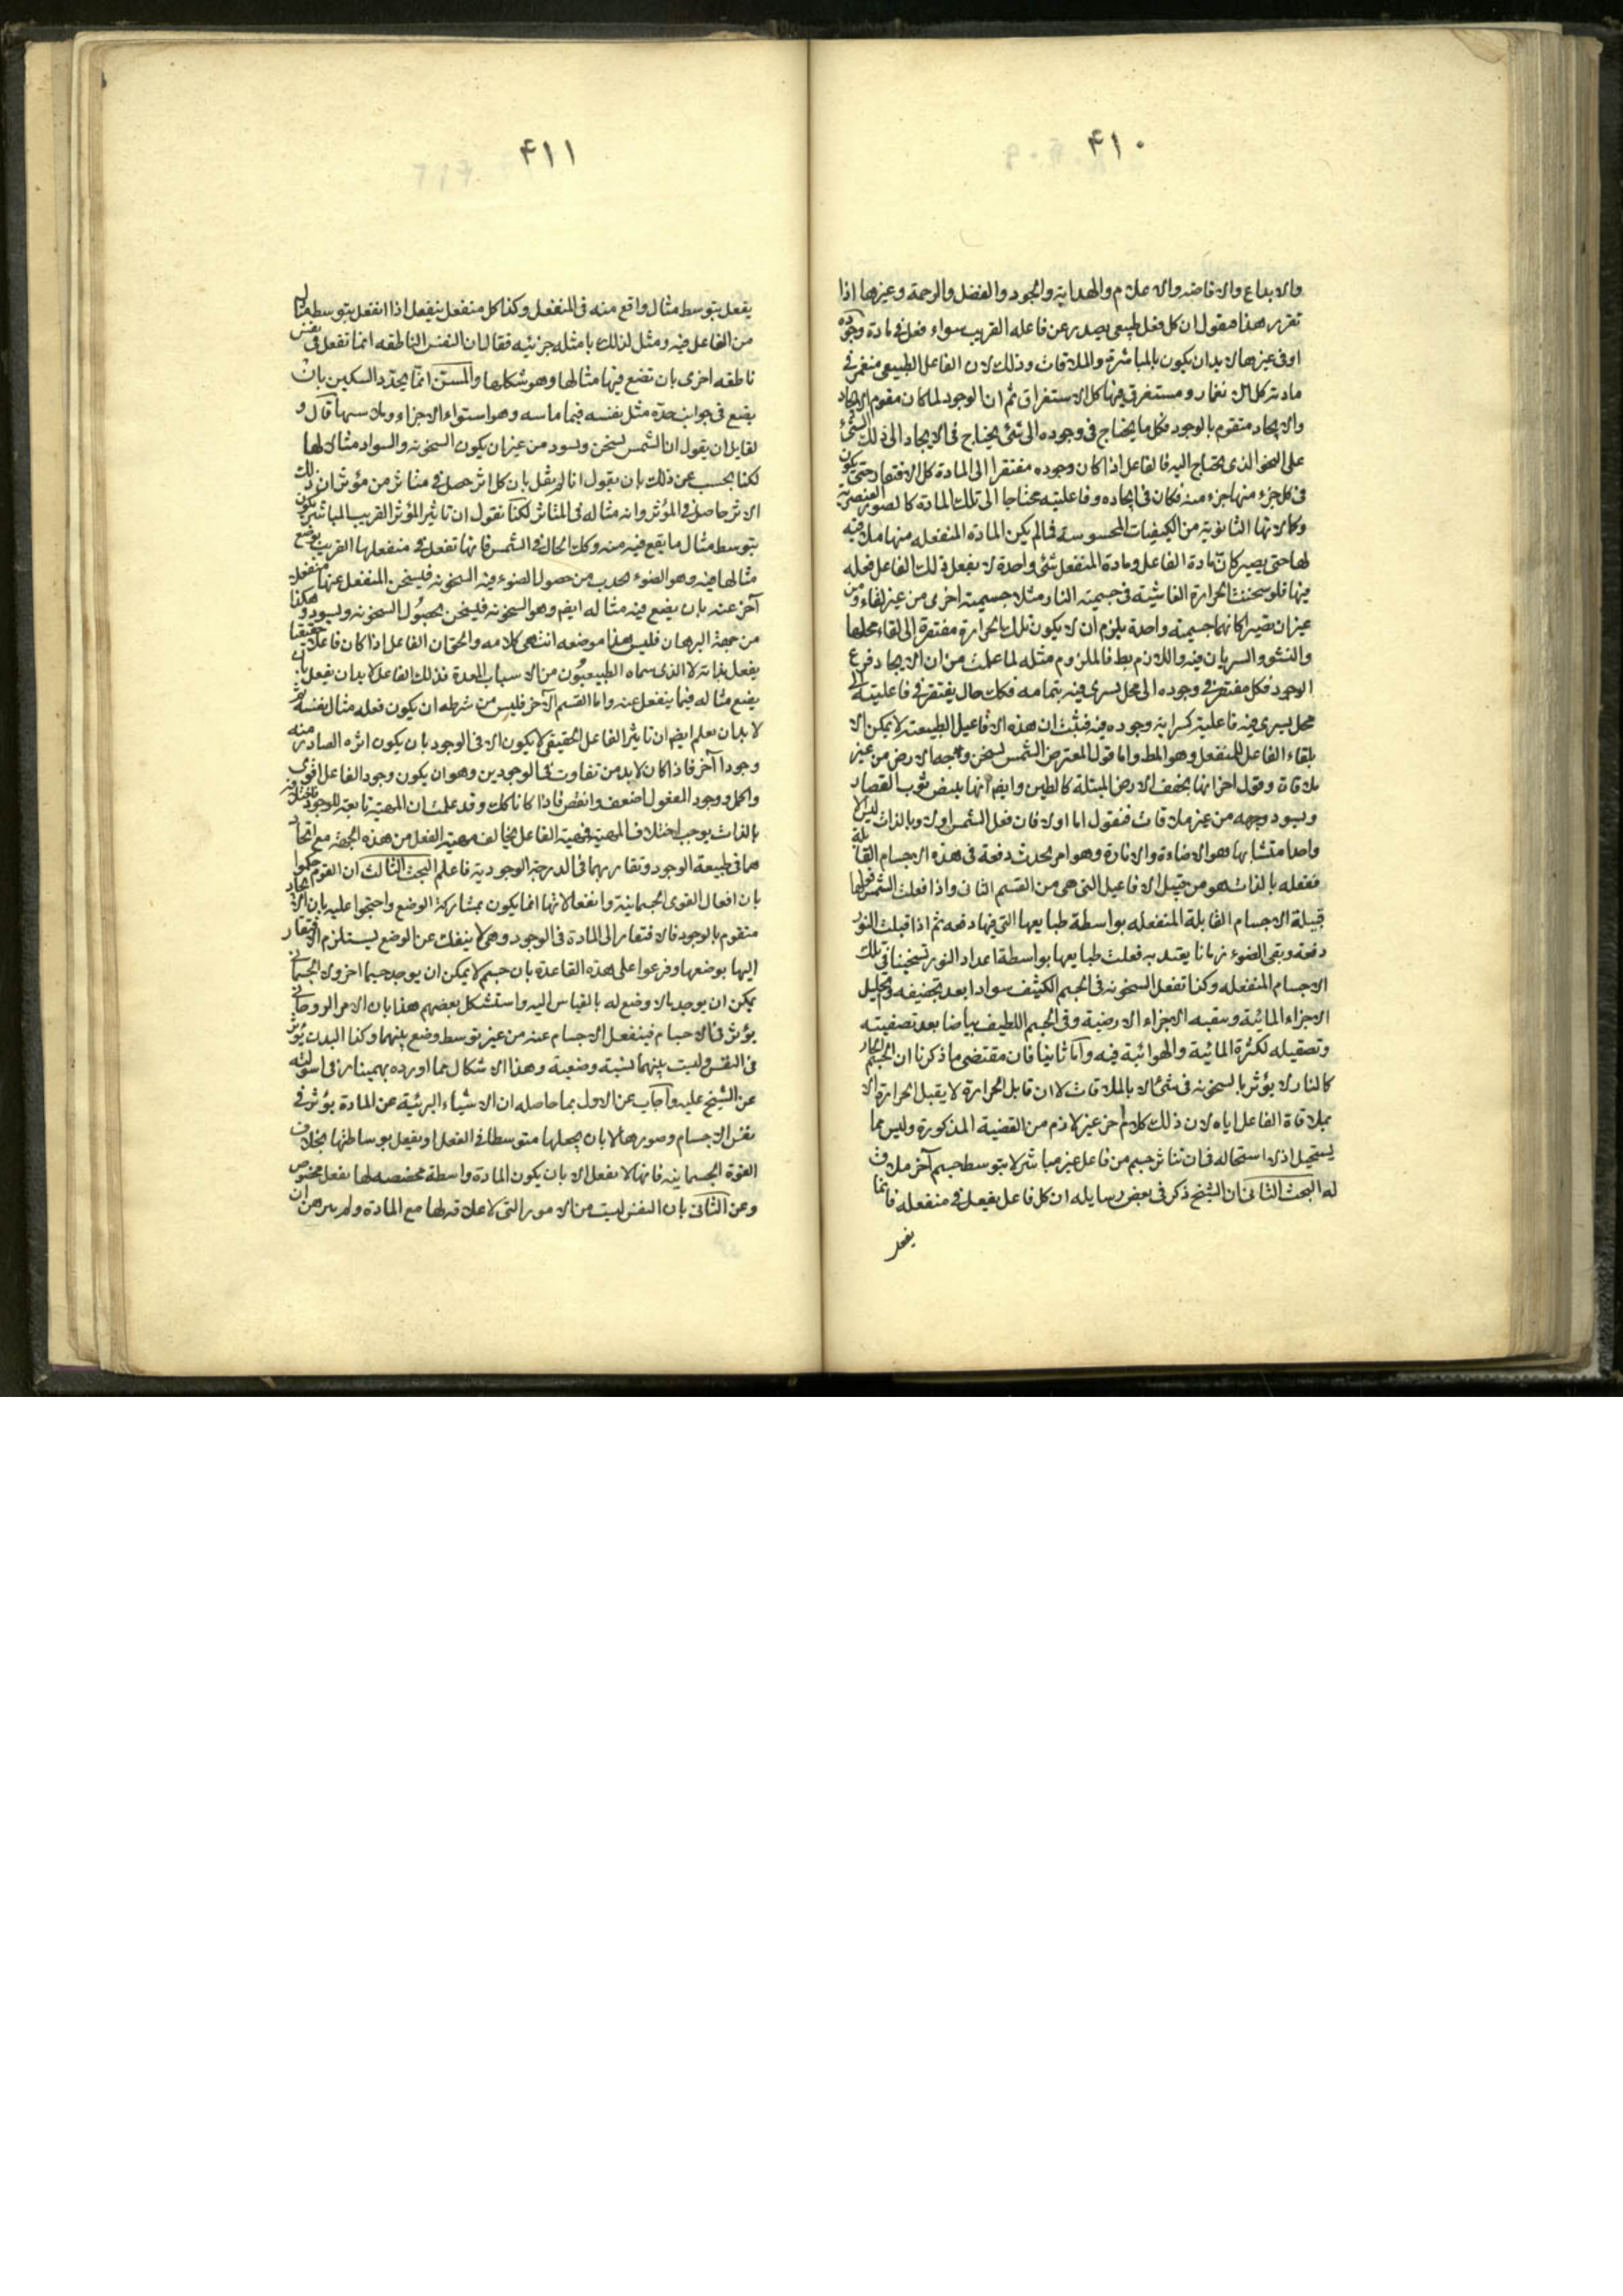 ۴۱۰
والابداع والافاضه والاعلام والهدایه والجود والفضل والرحمة وغیرها اذا
تقرر هذا فنقول ان كل فعل طبیعی یصدر عن فاعله القریب سواء فعل فی مادة وجوده
او فی غیرها لابد ان یكون بالمباشرة والملاقات وذلك لان الفاعل الطبیعی منغمر فی
مادته كل الانغمار ومستغرق فیها كل الاستغراق ثم ان الوجود لما كان مقوم الایجاد
والایجاد متقوم بالوجود فكل ما یحتاج فی وجوده الی شئ یحتاج فی الایجاد الی ذلك الشئ
علی النحو الذی یحتاج الیه فالفاعل اذا كان وجوده مفتقرا الی المادة كل الافتقار حتی یكون
فی كل جزء منها جزء منه فكان فی ایجاده وفاعلیته محتاجا الی تلك المادة كالصور العنصریه
وكمالاتها الثانویه من الكیفیات المحسوسة فما لم یكن المادة المنفعله منها ملاقیه
لها حتی یصیر كان مادة الفاعل ومادة المنفعل شئ واحدة لا یفعل ذلك الفاعل فعله
فیها فلو سخنت الحرارة الفاشیة فی جسمیة النار مثلا جسمیة اخری من غیر لقاء ومن
غیر ان تصیر كانهما جسمیة واحدة یلزم ان لا یكون تلك الحرارة مفتقرة الی لقاء محلها
والنشو والسریان فیه واللازم بط فالملزوم مثله لما علمت من ان الایجاد فرع
الوجود فكل مفتقر فی وجوده الی محل یسری فیه بتمامه فكك حال یفتقر فی فاعلیته الی
محل یسری فیه فاعلیته كسرایة وجوده فیه فثبت ان هذه الافاعیل الطبیعیة لا یمكن الا
بلقاء الفاعل للمنفعل وهو المط واما قول المعترض الشمس تسخن وجه الارض من غیر
ملاقاة وقوله اخر انها تجفف الارض المبتلة كالطین وایضا انها تبیض ثوب القصار
وتسود وجهه من غیر ملاقات فنقول اما اولا فان فعل الشمس اولا وبالذات لیس الا
واحدا متشابها وهو الاضاءة والانارة وهو امر یحدث دفعة فی هذه الاجسام القابلة
ففعله بالذات هو من قبیل الافاعیل التی هی من القسم الثانی واذا فعلت الشمس فعلها
قبیلة الاجسام القابلة المنفعله بواسطة طبایعها التی فیها دفعه ثم اذا قبلت النور
دفعة وبقی الضوء زمانا یعتد به فعلت طبایعها بواسطة اعداد النور تسخینا فی تلك
الاجسام المنفعله وكذا تفعل السخونه فی الجسم الكثیف سوادا بعد تجفیفه وتحلیل
الاجزاء المائیة وتبقیه الاجزاء الارضیة وفی الجسم اللطیف بیاضا بعد تصفیته
وتصقیله لكثرة المائیة والهوائیة فیه وآما ثانیا فان مقتضی ما ذكرنا ان الجسم الحار
كالنار لا یؤثر بالسخونه فی شئ الا بالملاقات لا ان قابل الحرارة لا یقبل الحرارة الا
بملاقاة الفاعل ایاه لان ذلك كلام آخر غیر لازم من القضیة المذكورة ولیس مما
یستحیل اذ لا استحاله فی ان تتاثر جسم من فاعل غیر مباشر لا بتوسط جسم آخر ملاق
له البحث الثانی ان الشیخ ذكر فی بعض رسایله ان كل فاعل یفعل فی منفعله فانما
یفعل
۴۱۱
یفعل بتوسط مثال واقع منه فی المنفعل وكذا كل منفعل ینفعل اذا انفعل بتوسط مثال
من الفاعل فیه ومثل لذلك بامثله جزئیه فقال ان النفس الناطقه انما تفعل فی نفس
ناطقه اخری بان تضع فیها مثالها وهو شكلها والمسن انما یحدد السكین بان
یضع فی جوانب حده مثل نفسه فیما ماسه وهو استواء الاجزاء وملاستها قال و
لقایل ان یقول ان الشمس تسخن وتسود من غیر ان یكون السخونه والسواد مثالا لها
لكنا نجیب عن ذلك بان نقول انا لم نقل بان كل اثر حصل فی متاثر من مؤثر ان ذلك
الاثر حاصل فی المؤثر وانه مثاله فی المتاثر لكنا نقول ان تاثیر المؤثر القریب المباشر یكون
بتوسط مثال ما یقع فیه منه وكك الحال فی الشمس فانها تفعل فی منفعلها القریب بوضع
مثالها فیه وهو الضوء یحدث من حصول الضوء فیه السخونه فیسخن المنفعل عنها منفعلا
آخر عنه بان یضع فیه مثاله ایضا وهو السخونه فیسخن بحصول السخونه ویسود هكذا
من جهة البرهان فلیس هذا موضعه انتهی كلامه والحق ان الفاعل اذا كان فاعلا حقیقیا
یفعل بذاته لا الذی سماه الطبیعیون من الاسباب المعدة فذلك الفاعل لابد ان یفعل بان
یضع مثاله فیما ینفعل عنه واما القسم الآخر فلیس من شرطه ان یكون فعله مثال نفسه ثم
لابد ان یعلم ایضا ان تاثیر الفاعل الحقیقی لا یكون الا فی الوجود بان یكون اثره الصادر منه
وجودا آخر فاذا كان لابد من تفاوت فی الوجودین وهو ان یكون وجود الفاعل اقوی
واكمل ووجود المفعول اضعف وانقص فاذا كانا كك وقد علمت ان المهیة تابعة للوجود فاختلافه
بالذات یوجب اختلاف المهیة فمهیة الفاعل یخالف مهیة الفعل من هذه الجهة مع اتحاد
هما فی طبیعة الوجود وتقاربهما فی الدرجة الوجودیة فاعلم البحث الثالث ان القوم حكموا
بان افعال القوی الجسمانیة وانفعالاتها انما یكون بمشاركة الوضع واحتجوا علیه بان الایجاد
متقوم بالوجود فالافتقار الی المادة فی الوجود وهی لا ینفك عن الوضع یستلزم الافتقار
الیها بوضعها وفرعوا علی هذه القاعدة بان جسم لا یمكن ان یوجد جسما اخر ولا الجسمانی
یمكن ان یوجد ما لا وضع له بالقیاس الیه واستشكل بعضهم هذا بان الامر الروحانی
یؤثر فی الاجسام فینفعل الاجسام عنه من غیر توسط وضع بینهما وكذا البدن یؤثر
فی النفس ولیست بینهما نسبة وضعیة وهذا الاشكال مما اورده بهمنیار فی اسولته
عن الشیخ علیه وآجاب عن الاول بما حاصله ان الاشیاء البریئة عن المادة یؤثر فی
نفس الاجسام وصورها لا بان یجعلها متوسطا فی الفعل او یفعل بوساطتها بخلاف
القوة الجسمانیه فانها لا یفعل الا بان یكون المادة واسطة مخصصه لها بفعل مخصوص
وعن الثانی بان النفس لیست من الامور التی لا علاقه لها مع المادة ولم یبرهن ان